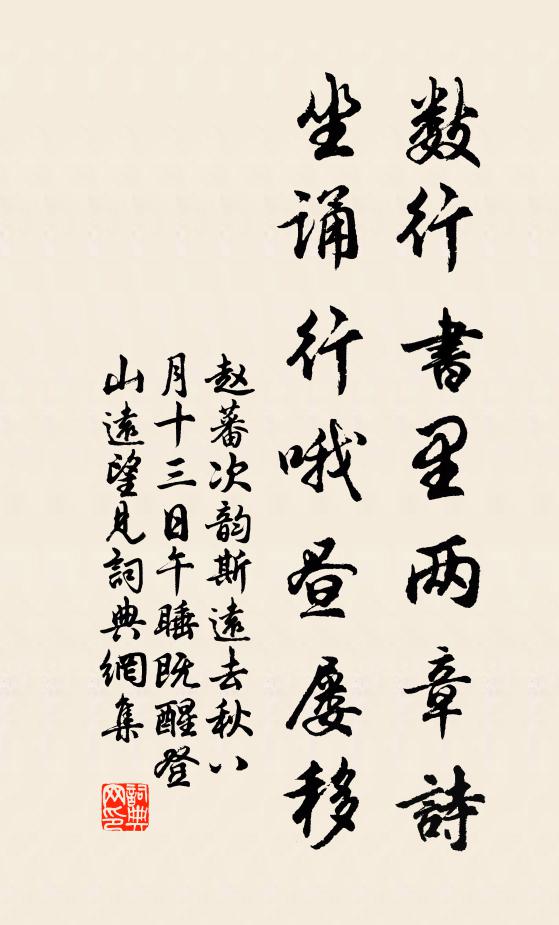 数行書里两章詩
坐诵行哦昼屡移
赵蕃次韵斯遠去秋八
月十三日午睡既醒登
山遠望見詞典網集
詞典
网印